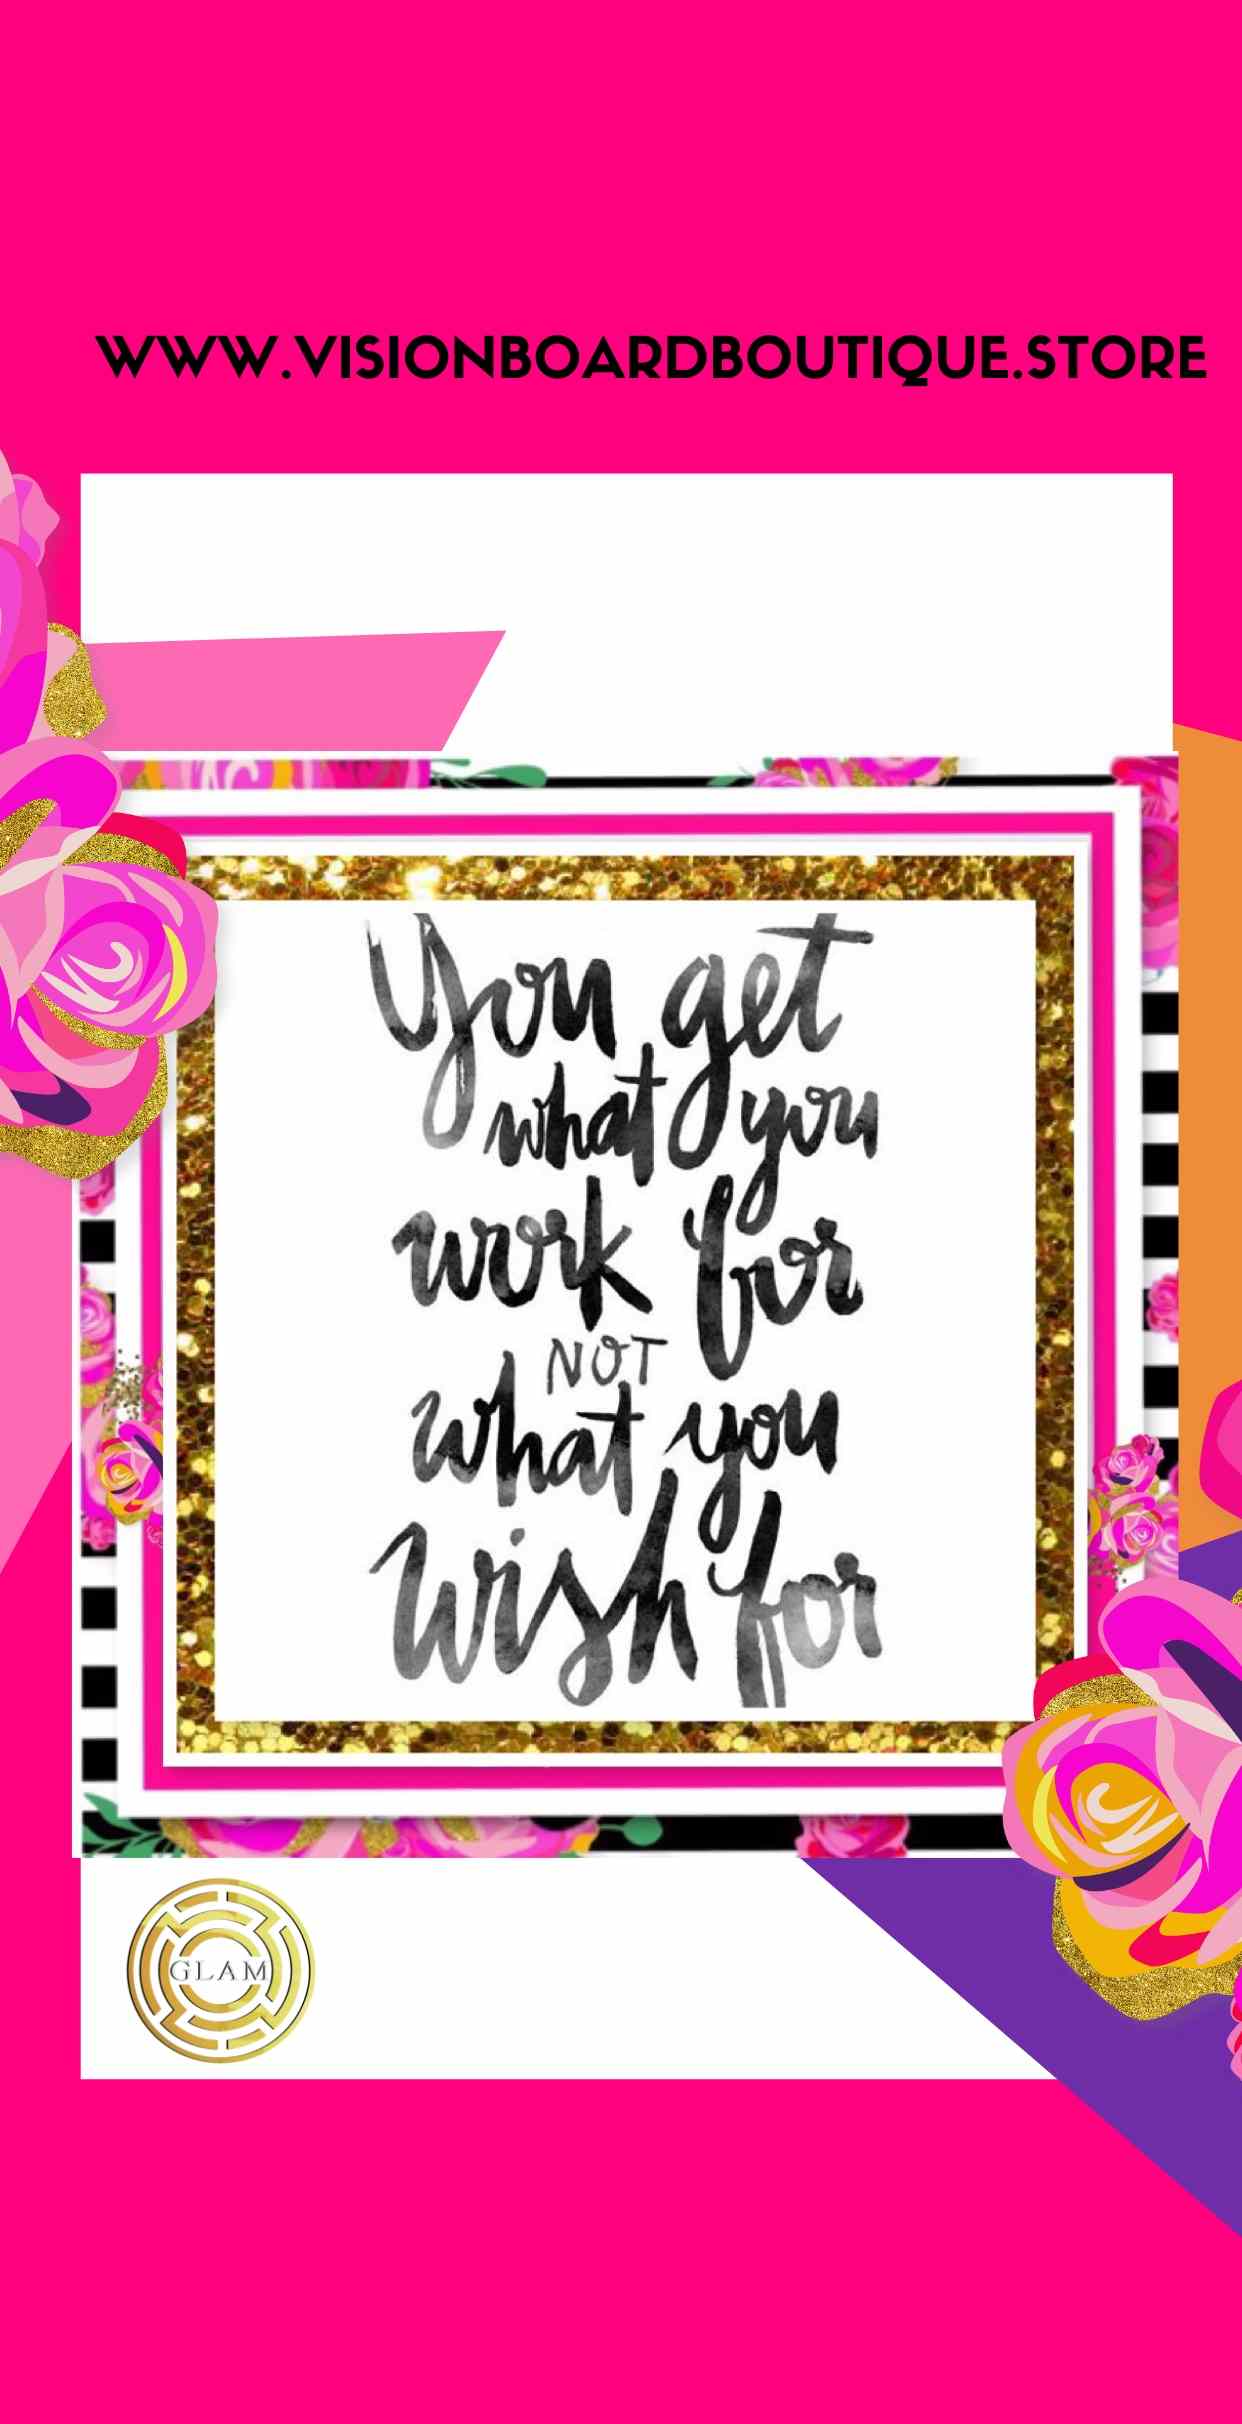 WWW.VISIONBOARDBOUTIQUE.STORE
You get
what you
work for
NOT
what you
wish for
GLAM